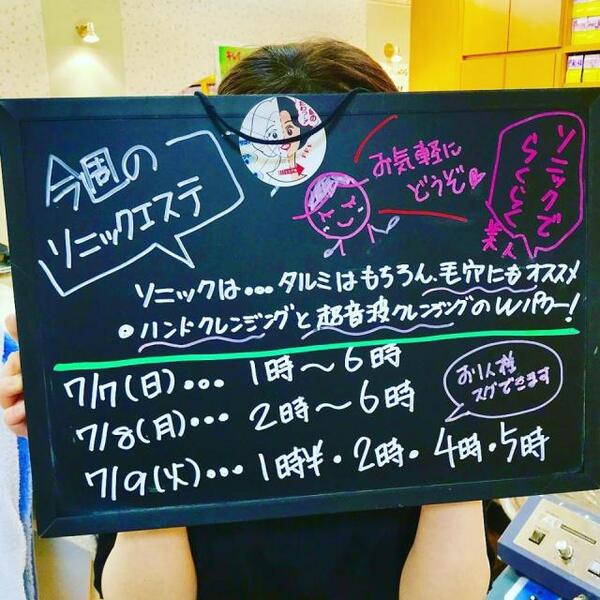 今周の
ソニックエステ
お気軽に
どうぞ♡
ソニックで
らくらく
美人
ソニックは…タルミはもちろん、毛穴にもオススメ
●ハンドクレンジングと超音波クレンジングのWパワー！
7/7(日)…1時〜6時
7/8(月)…2時〜6時
お1人様
スグできます
7/9(火)…1時半・2時・4時・5時